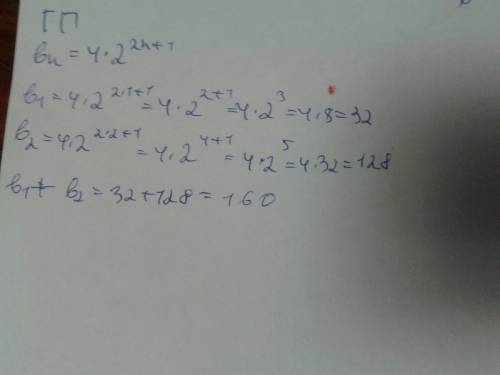 ГП
bn = 4·2^{2n+1}
b1 = 4·2^{2·1+1} = 4·2^{2+1} = 4·2^3 = 4·8 = 32
b2 = 4·2^{2·2+1} = 4·2^{4+1} = 4·2^5 = 4·32 = 128
b1 + b2 = 32+128 = 160